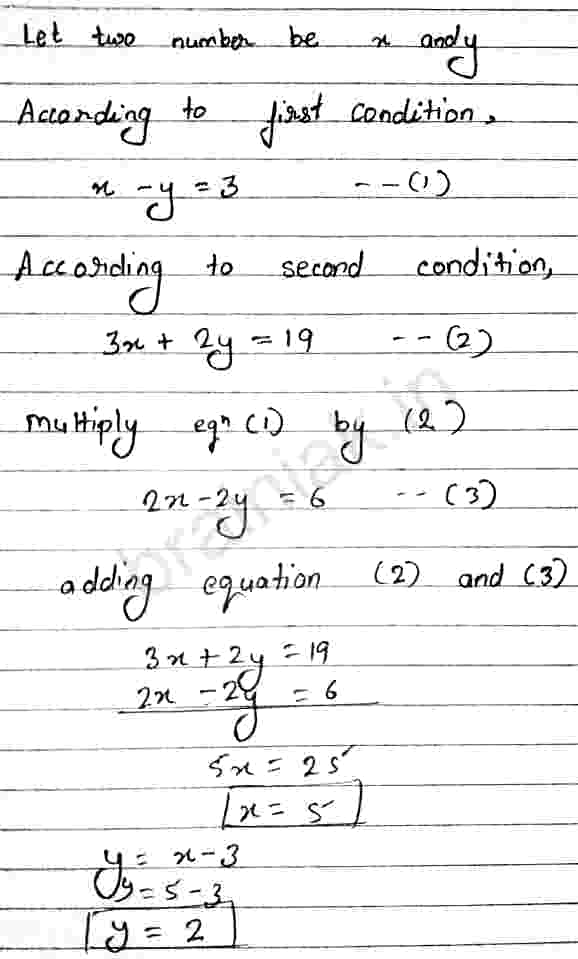 Let two number be x and y
According to first condition,
x - y = 3 -- (1)
According to second condition,
3x + 2y = 19 -- (2)
multiply eqn (1) by (2)
2x - 2y = 6 -- (3)
brainiak.in
adding equation (2) and (3)
3x + 2y = 19
2x - 2y = 6
5x = 25
x = 5
y = x - 3
y = 5 - 3
y = 2